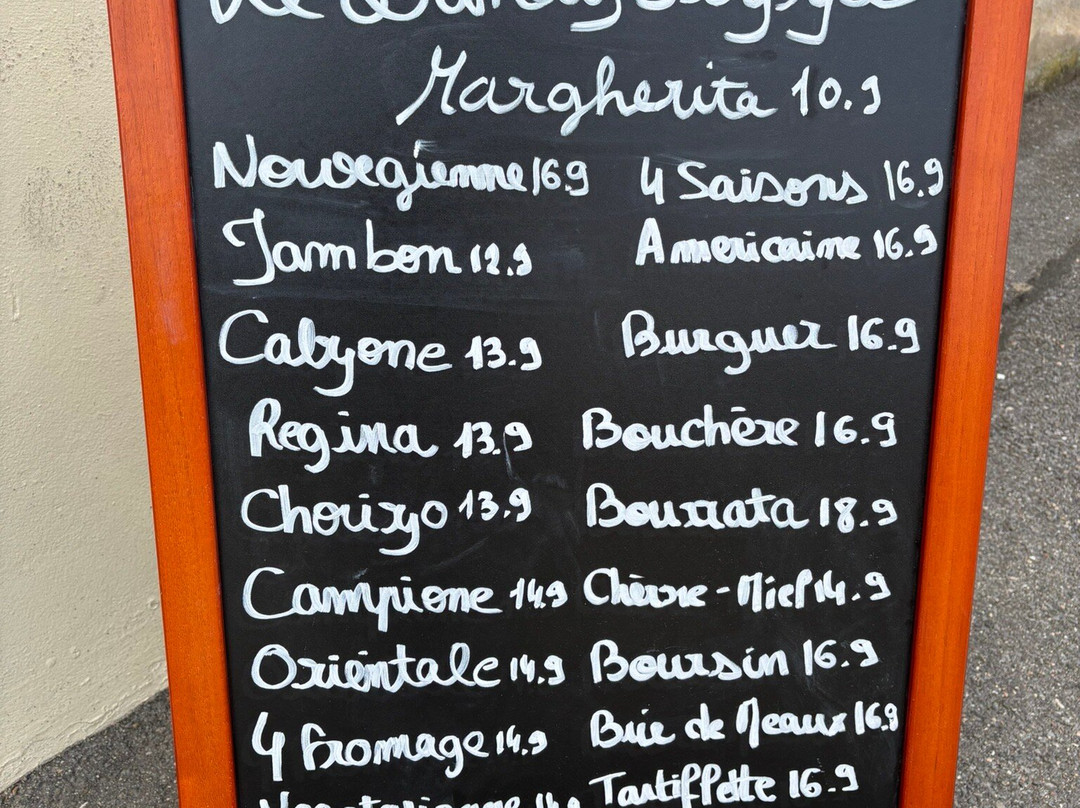 Margherita 10.9
Norvegienne 16.9
4 Saisons 16.9
Jambon 12.9
Americaine 16.9
Calzone 13.9
Burguer 16.9
Regina 13.9
Bouchère 16.9
Chorizo 13.9
Bourrata 18.9
Campione 14.9
Chèvre-Miel 14.9
Orientale 14.9
Boursin 16.9
4 fromage 14.9
Brie de Meaux 16.9
Tartiflette 16.9